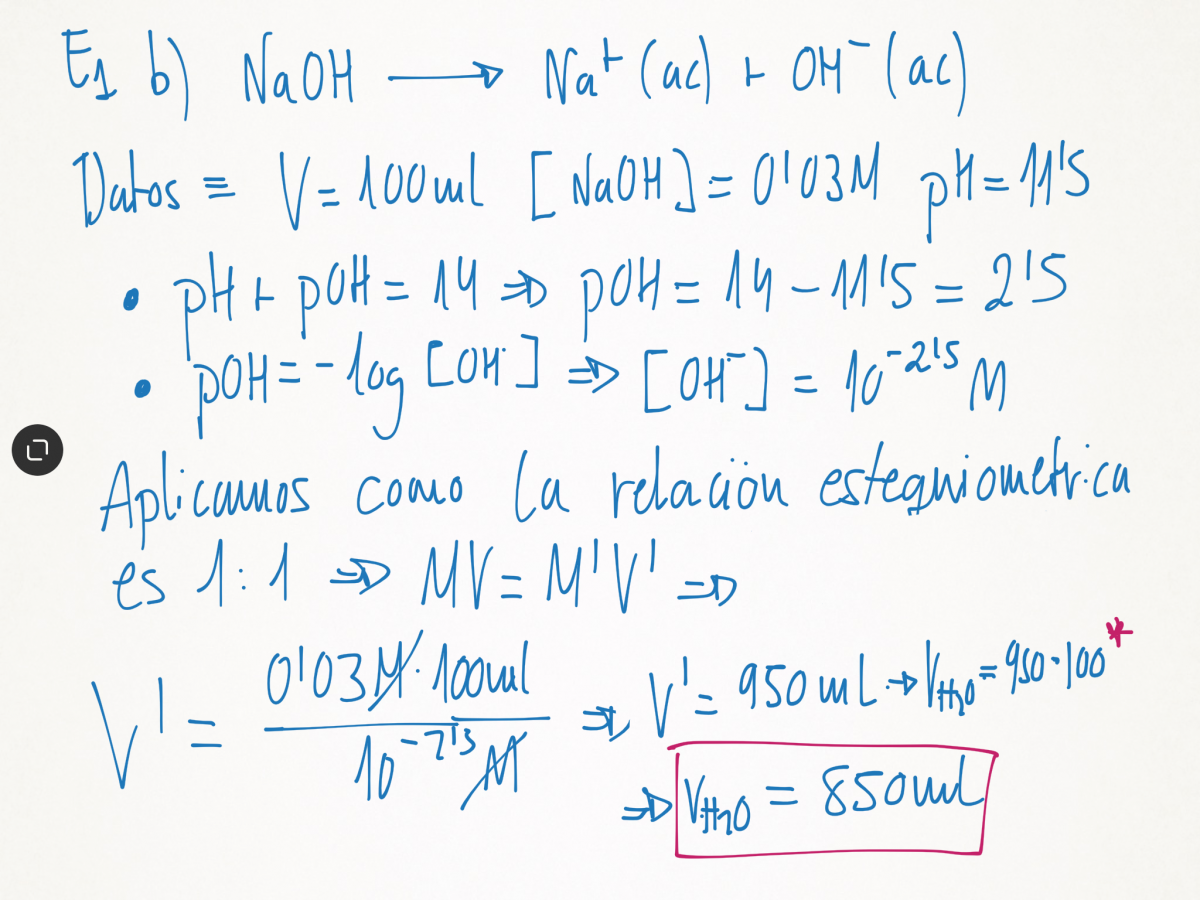 E1 b) NaOH ⟶ Na⁺ (ac) + OH⁻ (ac)
Datos = V = 100ml [NaOH] = 0'03M pH = 11'5
• pH + pOH = 14 ⇒ pOH = 14 - 11'5 = 2'5
• pOH = - log [OH⁻] ⇒ [OH⁻] = 10^-2'5 M
Aplicamos como la relación estequiometrica
es 1:1 ⇒ MV = M'V' ⇒
V' = 0'03M · 100ml / 10^-2'5 M ⇒ V' = 950 mL → VH2O = 950 - 100 *
⇒ VH2O = 850mL